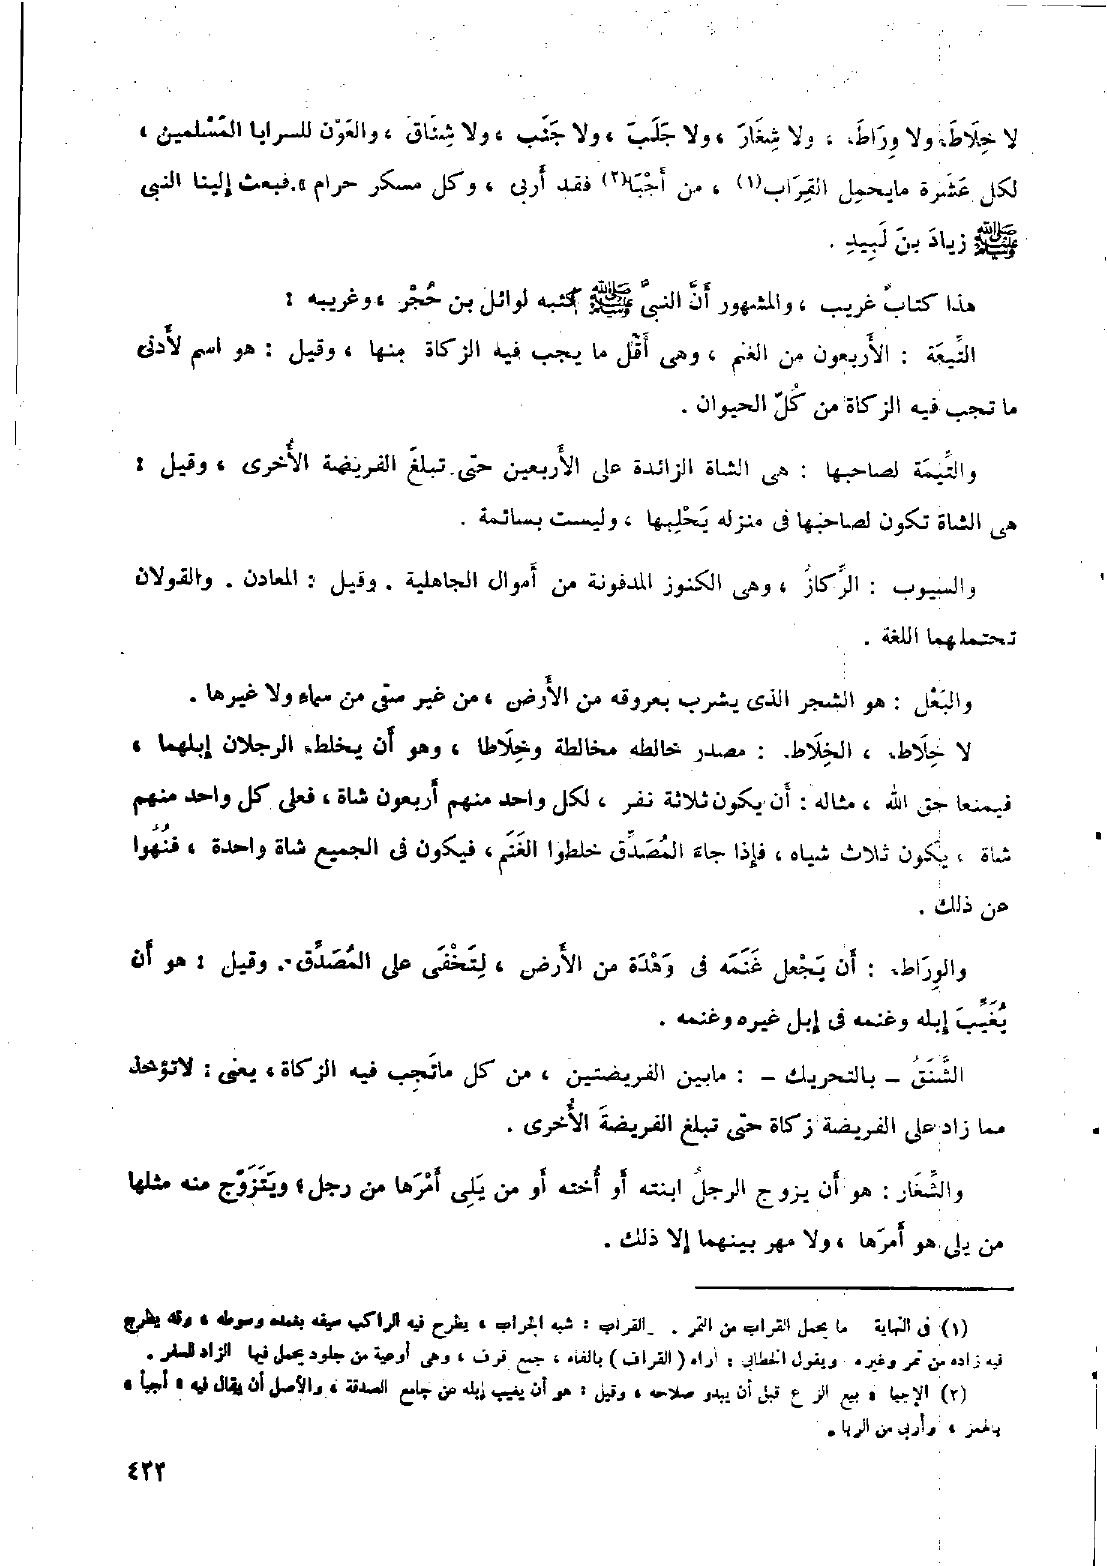 لا خِلَاطَ، ولا وِرَاطَ، ولا شِغَارَ، ولا جَلَبَ، ولا جَنَب، ولا شِنَاق، والعَوْن للسرايا المَسْلمين،
لكل عَشَرة مايحمِل القِرَاب(١)، من أَجْبَا(٢) فقد أَربى، وكل مسكر حرام». فبعث إلينا النبى
ﷺ زيادَ بنَ لَبِيدِ.
هذا كتابٌ غريب، والمشهور أَنَّ النبىَّ ﷺ كتبه لوائل بن حُجْر، وغريبه:
التِّيعَة : الأَربعون من الغنم، وهى أَقَل ما يجب فيه الزكاة منها، وقيل : هو اسم لأَدنى
ما تجب فيه الزكاة من كُلّ الحيوان.
والتِّيمَة لصاحبها : هى الشاة الزائدة على الأَربعين حتى تبلغَ الفريضة الأُخرى، وقيل :
هى الشاة تكون لصاحبها فى منزله يَحْلِبها، وليست بسائمة.
والسيوب : الرِّكازُ، وهى الكنوز المدفونة من أَموال الجاهلية. وقيل : المعادن. والقولان
تحتملهما اللغة.
والبَعْل : هو الشجر الذى يشرب بعروقه من الأَرض، من غير سقى من سماءٍ ولا غيرها.
لا خِلَاط، الخِلَاط : مصدر خالطه مخالطة وخِلَاطا، وهو أَن يخلط الرجلان إبلهما،
فيمنعا حق الله، مثاله : أَن يكون ثلاثة نفر، لكل واحد منهم أَربعون شاة، فعلى كل واحد منهم
شاة، يكون ثلاث شياه، فإِذا جاءَ المُصَدِّق خلطوا الغَنَم، فيكون فى الجميع شاة واحدة، فنُهُوا
عن ذلك.
والوِرَاط : أَن يَجْعل غَنَمَه فى وَهْدَة من الأَرض، لِتَخْفَى على المُصَدِّق. وقيل : هو أَن
يُغَيِّبَ إبله وغنمه فى إبل غيره وغنمه.
الشَّنَقُ - بالتحريك - : مابين الفريضتين، من كل ماتَجب فيه الزكاة، يعنى : لاتؤخذ
مما زاد على الفريضة زكاة حتى تبلغ الفريضةَ الأُخرى.
والشِّغَار : هو أَن يزوج الرجلُ ابنته أَو أُخته أَو من يَلِى أَمْرَها من رجل؛ ويَتَزَوَّج منه مثلها
من يلى هو أَمرَها، ولا مهر بينهما إلا ذلك.
(١) فى النهاية ما يحمل القراب من التمر. القراب : شبه الجراب، يطرح فيه الراكب سيفه بغمده وسوطه، وقد يطرح
فيه زاده من تمر وغيره ويقول الخطابي : أراه (القراف) بالفاء، جمع قرف، وهى أوعية من جلود يحمل فيها الزاد للسفر.
(٢) الإجبا : بيع الزرع قبل أن يبدو صلاحه، وقيل : هو أن يغيب إبله عن جامع الصدقة، والأصل أن يقال فيه «أجبأ»
بالهمز، وأربى من الربا.
٤٣٣